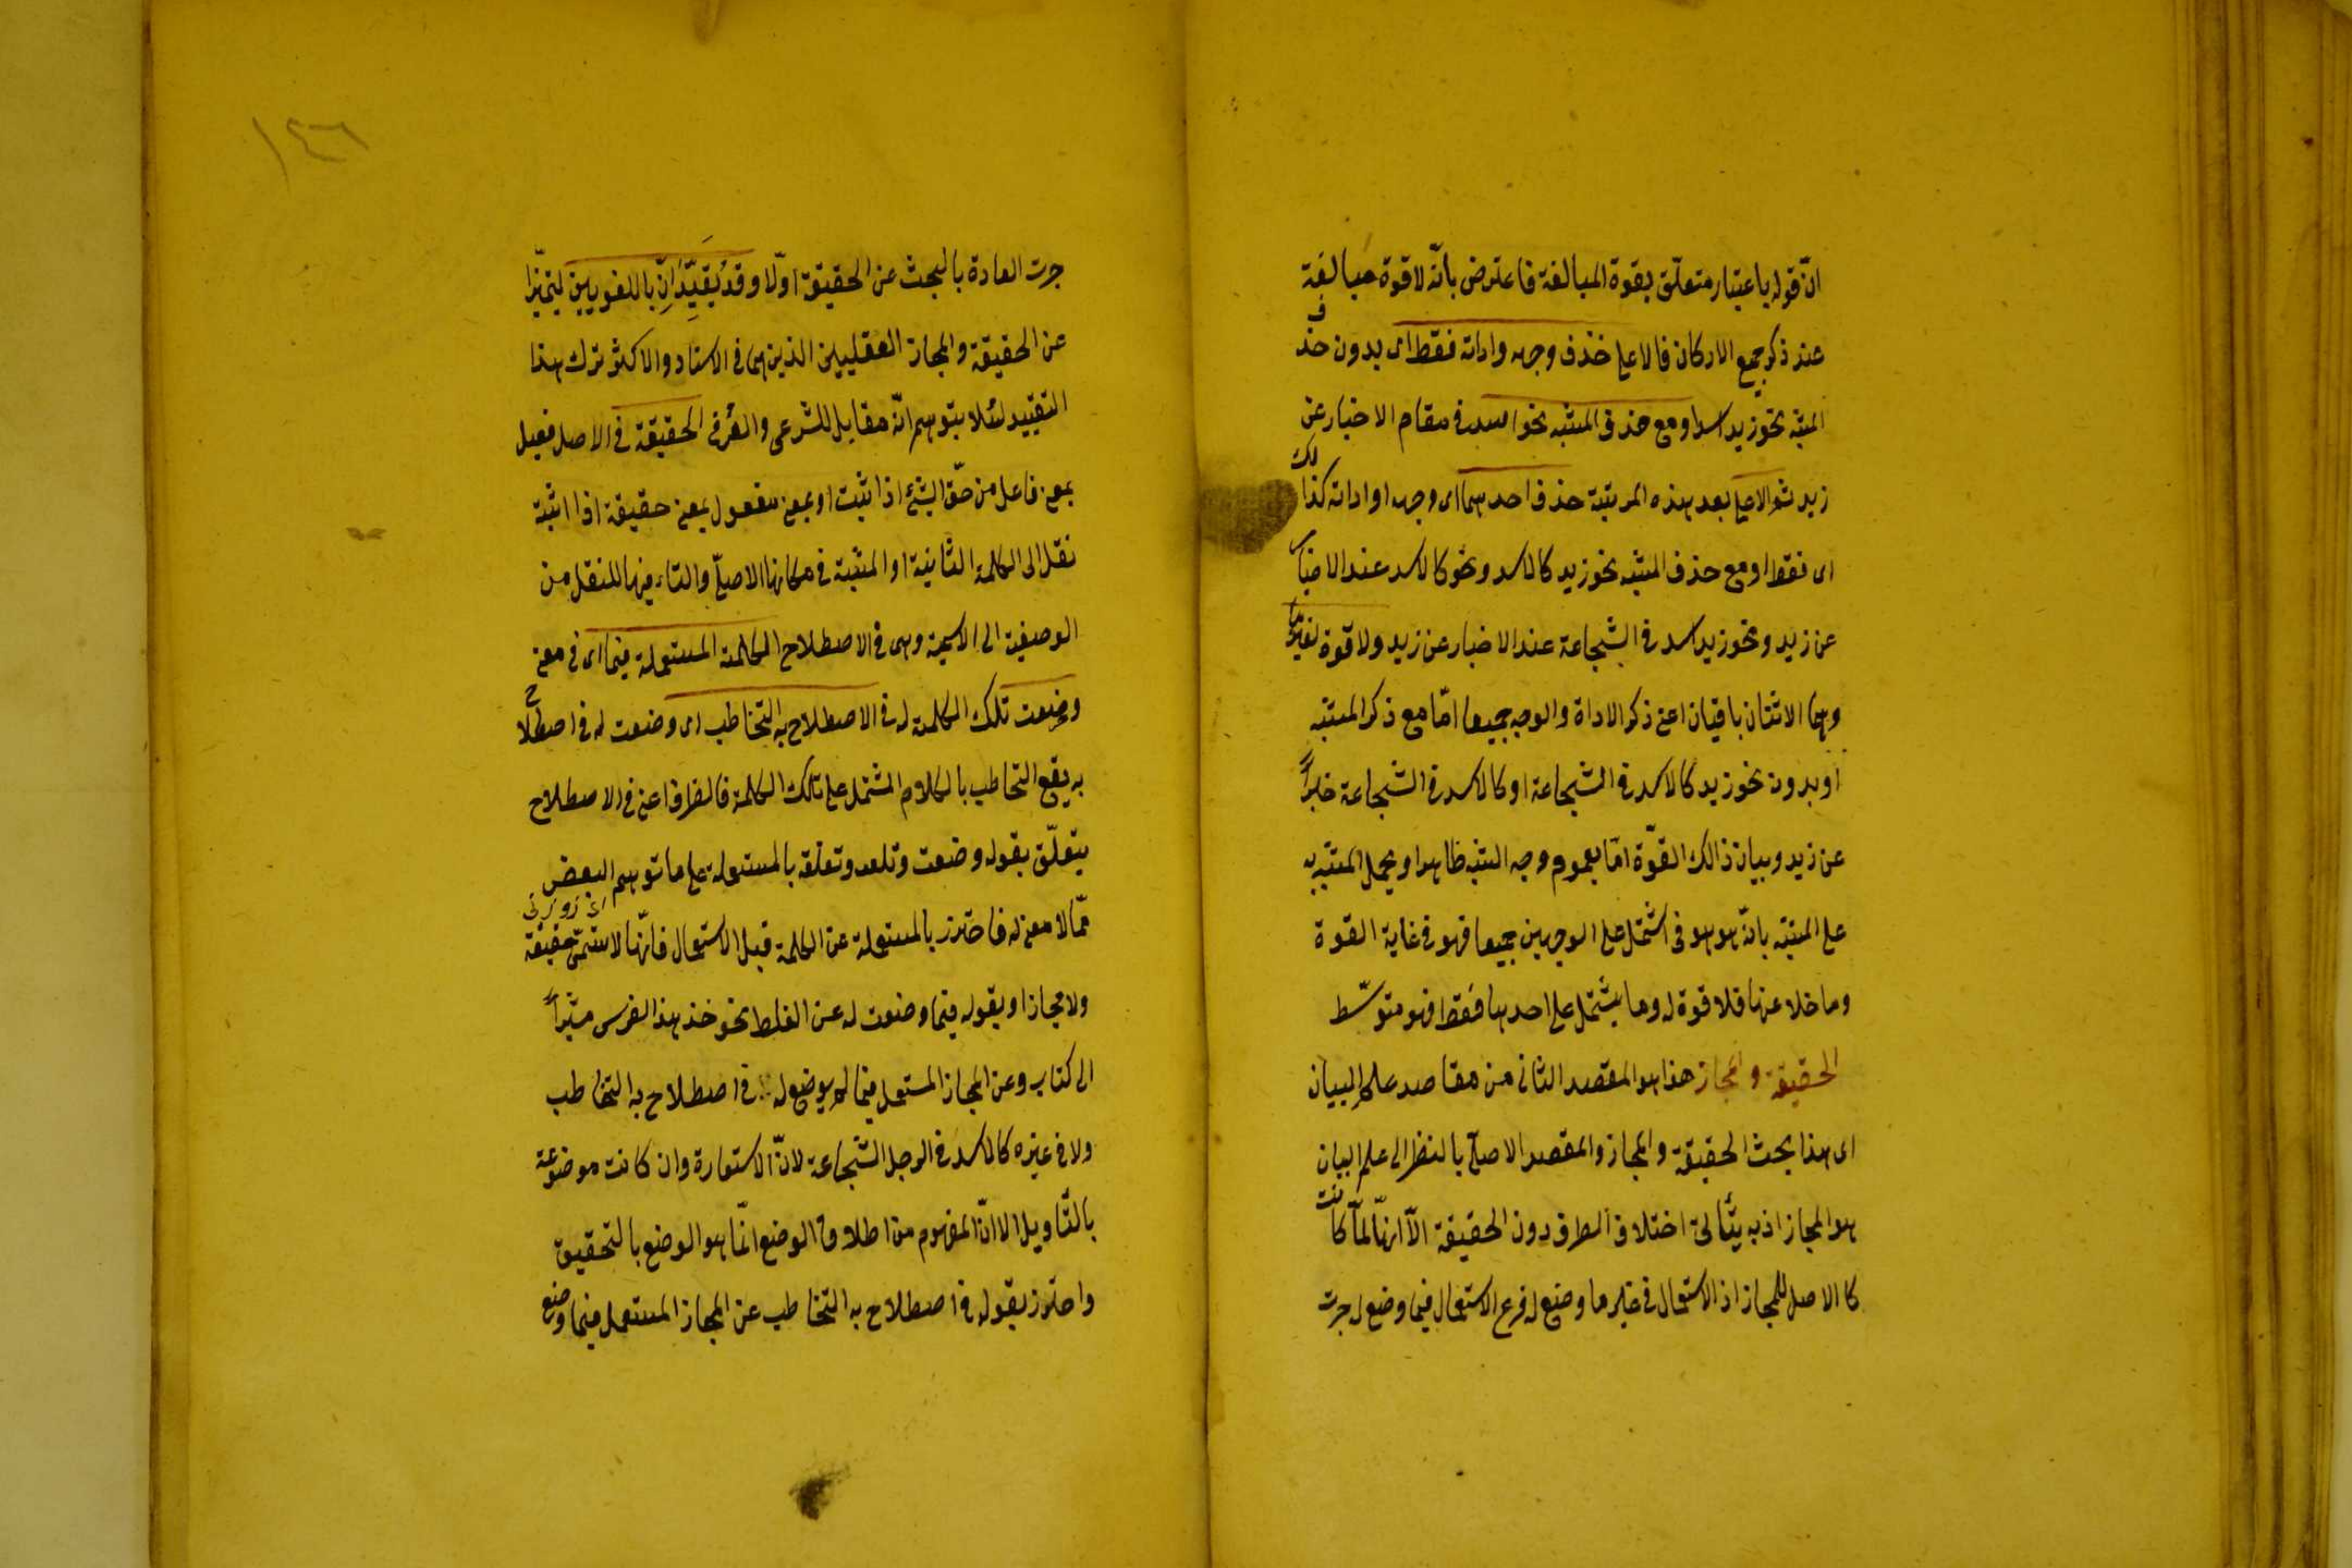 انّ قوله باعتبار متعلّق بقوة المبالغة فاعترض بانّه لا قوة مبالغة
عند ذكر جميع الاركان فالاعلى حذف وجهه واداته فقط اى بدون حذف
المشبه نحو زيد اسد او مع حذف المشبه نحو اسد فى مقام الاخبار عن
زيد ثم الاعلى بعد هذه المرتبة حذف احدهما اى وجهه او اداته كذلك
اى فقط او مع حذف المشبه نحو زيد كالاسد ونحو كالاسد عند الاخبار
عن زيد ونحو زيد اسد فى الشجاعة عند الاخبار عن زيد ولا قوة لغيرهما
وهما الاثنان باقيان اعنى ذكر الاداة والوجه جميعا امّا مع ذكر المشبه
او بدون نحو زيد كالاسد فى الشجاعة او كالاسد فى الشجاعة خبراً
عن زيد وبيان ذالك القوّة امّا بعموم وجه الشبه ظاهرا او بحمل المشبه به
على المشبه بانّه هو هو فما اشتمل على الوجهين جميعا فهو فى غاية القوة
وما خلا عنها فلا قوة له وما يشتمل على احدهما فقط فهو متوسّط
الحقيقة والمجاز هذا هو المقصد الثانى من مقاصد علم البيان
اى هذا بحث الحقيقة والمجاز والمقصد الاصلىّ بالنظر الى علم البيان
هو المجاز اذ به يتأتى اختلاف الطرف دون الحقيقة الاّ انهّا لمّا كانت
كالاصل للمجاز اذ الاستعمال فى غير ما وضع له فرع الاستعمال فيما وضع له جرت
١٤٦
جرت العادة بالبحث عن الحقيقة اوّلا وقد يقيّدان باللغويين ليتميّزا
عن الحقيقة والمجاز العقليين الذين هما فى الاسناد والاكثر ترك هذا
التقييد لئلا يتوهم انّه مقابل للشرعى والعُرفى الحقيقة فى الاصل فعيل
بمعنى فاعل من حقّ الشىء اذا ثبت او بمعنى مفعول بمعنى حقيقة اذا اثبته
نقل الى الكلمة الثانية او المثبتة فى مكانها الاصلىّ والتاء فيها للنقل من
الوصفية الى الاسمية وهى فى الاصطلاح الكلمة المستعملة فيما اى فى معنى
وضعت تلك الكلمة له فى الاصطلاح به التخاطب اى وضعت له فى اصطلاح
به يقع التخاطب بالكلام المشتمل على تلك الكلمة فالظرف اعنى فى الاصطلاح
يتعلّق بقوله وضعت وتعلقه بالمستعملة على ما توهم البعض
ممّا لا معنى له فاحترز بالمستعملة عن الكلمة قبل الاستعمال فانّها لا تسمّى حقيقة
ولا مجازا وبقوله فيما وضعت له عن الغلط نحو خذ هذا الفرس مشيراً
الى كتاب وعن المجاز المستعمل فيما لم يوضع له فى اصطلاح به التخاطب
ولا فى غيره كالاسد فى الرجل الشجاعة لانّ الاستعارة وان كانت موضوعة
بالتّاويل الا انّ المفهوم من اطلاق الوضع انّما هو الوضع بالتحقيق
واحترز بقوله فى اصطلاح به التخاطب عن المجاز المستعمل فيما وضع